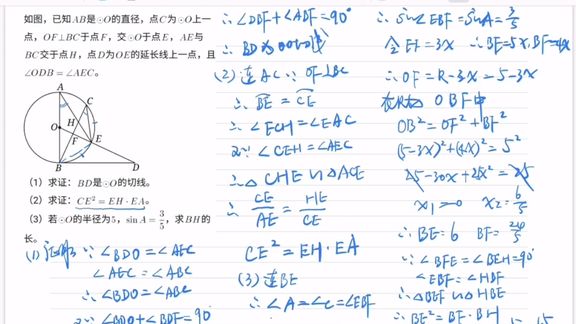 如图，已知AB是⊙O的直径，点C为⊙O上一
点，OF⊥BC于点F，交⊙O于点E，AE与
BC交于点H，点D为OE的延长线上一点，且
∠ODB=∠AEC。
A
C
O
H
F
E
B
D
（1）求证：BD是⊙O的切线。
（2）求证：CE²=EH·EA。
（3）若⊙O的半径为5，sin A=3/5，求BH的
长。
(1) ∵∠BDO=∠AEC
∠AEC=∠ABC
∴∠BDO=∠ABC
∵∠BDO+∠DBF=90°
∴∠DBF+∠ABF=90°
∴BD为⊙O的切
(2)连AC ∵OF⊥BC
∴BE=CE
∴∠ECH=∠EAC
又∵∠CEH=∠AEC
∴△CHE∽△ACE
∴CE/AE=HE/CE
CE²=EH·EA
(3)连BE
∴∠A=∠C=∠EBF
∴sin∠EBF=sinA=3/5
∴BE=5x,BF=4x
∴OF=R-3x=5-3x
在Rt△OBF中
OB²=OF²+BF²
(5-3x)²+(4x)²=5²
25-30x+25x²=25
x₁=0 x₂=6/5
∴BE=6 BF=24/5
∵∠BFE=∠BEH=90°
∠EBF=∠HBF
∴△BEF∽△HBE
∴BE²=BF·BH